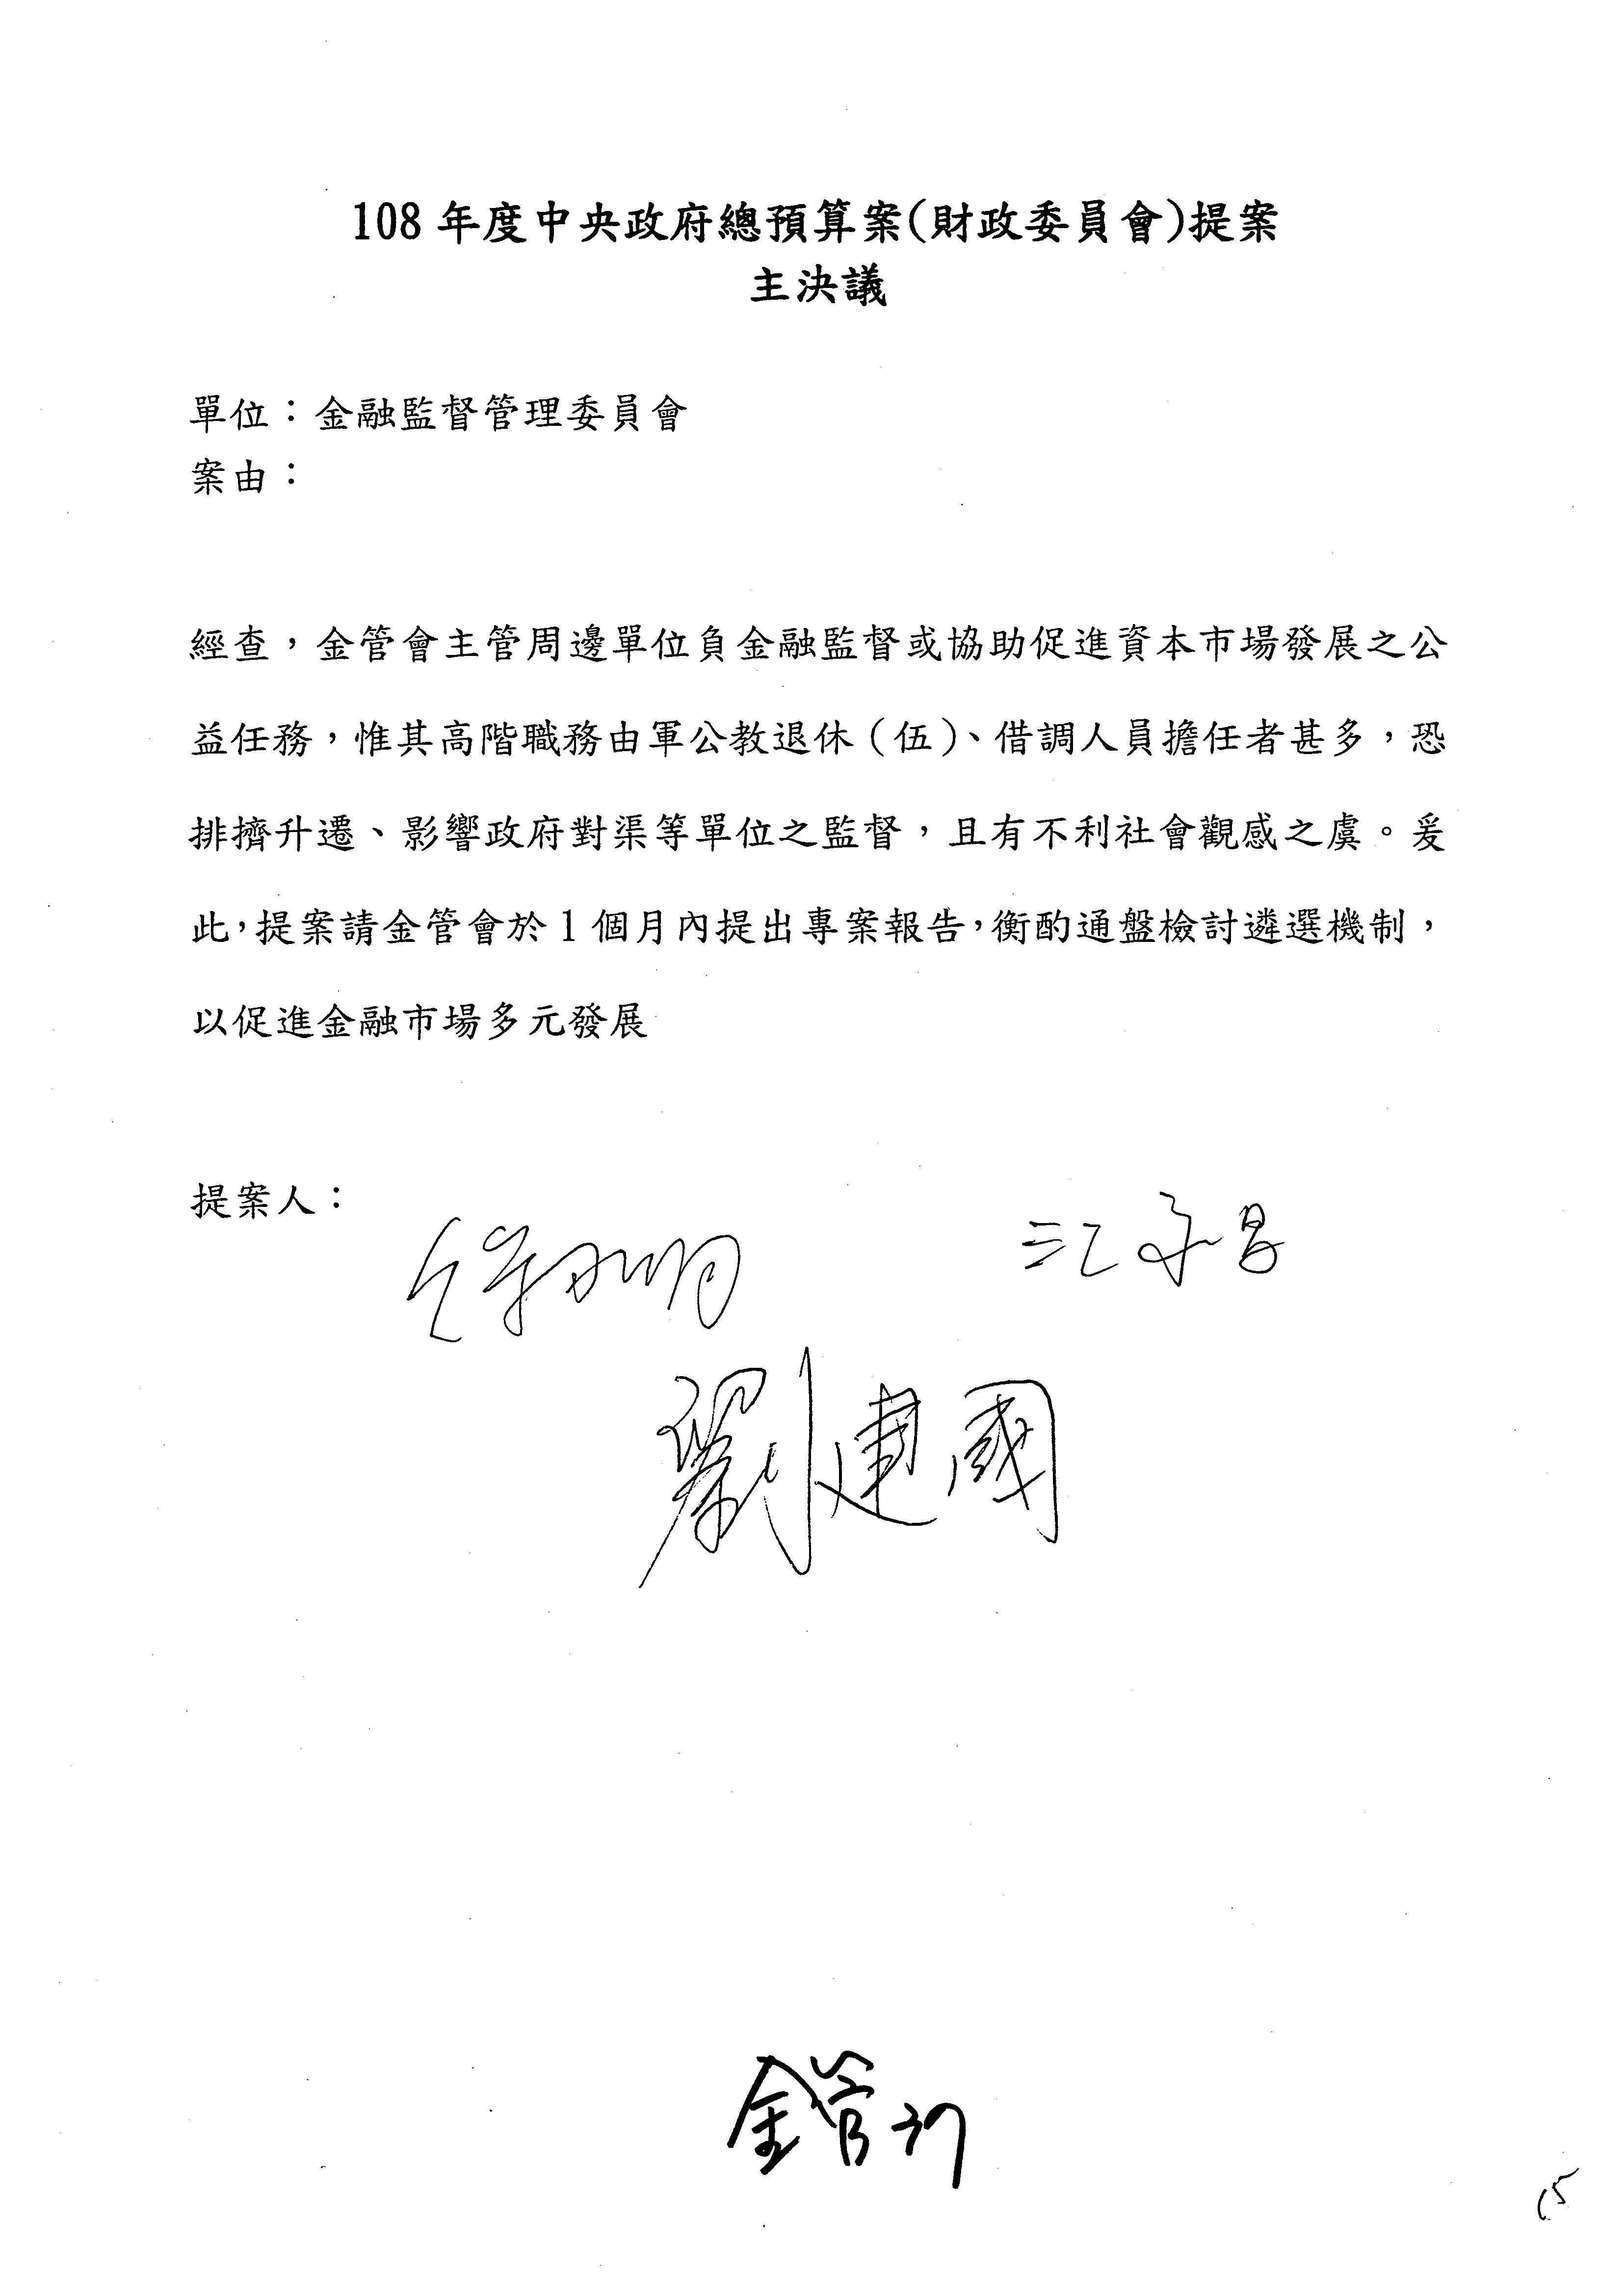 108年度中央政府總預算案(財政委員會)提案
主決議
單位：金融監督管理委員會
案由：
經查，金管會主管周邊單位負金融監督或協助促進資本市場發展之公
益任務，惟其高階職務由軍公教退休（伍）、借調人員擔任者甚多，恐
排擠升遷、影響政府對渠等單位之監督，且有不利社會觀感之虞。爰
此，提案請金管會於1個月內提出專案報告，衡酌通盤檢討遴選機制，
以促進金融市場多元發展
提案人：
江永昌
劉建國
金管37
15